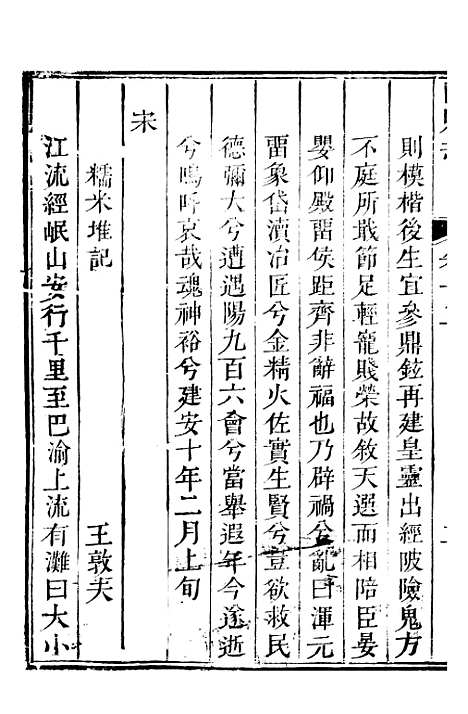 則模楷後生宜參鼎鉉再建皇靈出經陂險鬼方
不庭所戢節足輕寵賤榮故敘天選而相陪臣晏
嬰仰殿畱侯距齊非辭福也乃辟禍兮亂曰渾元
畱象岱瀆冶匠兮金精火佐實生賢兮豈欲救民
德彌大兮遭遇陽九百六會兮當舉遐年今遂逝
兮嗚呼哀哉魂神裕兮建安十年二月上旬
宋
糯米堆記 王敦夫
江流經岷山安行千里至巴渝上流有灘曰大小